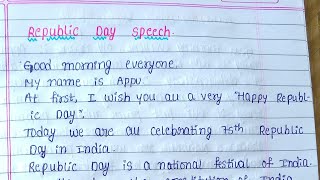 Republic Day speech.
Good morning everyone.
My name is Appu.
At first, I wish you all a very "Happy Republ-
ic Day".
Today we are all celebrating 75th Republic
Day in India.
Republic Day is a national festival of India.
constitution of India